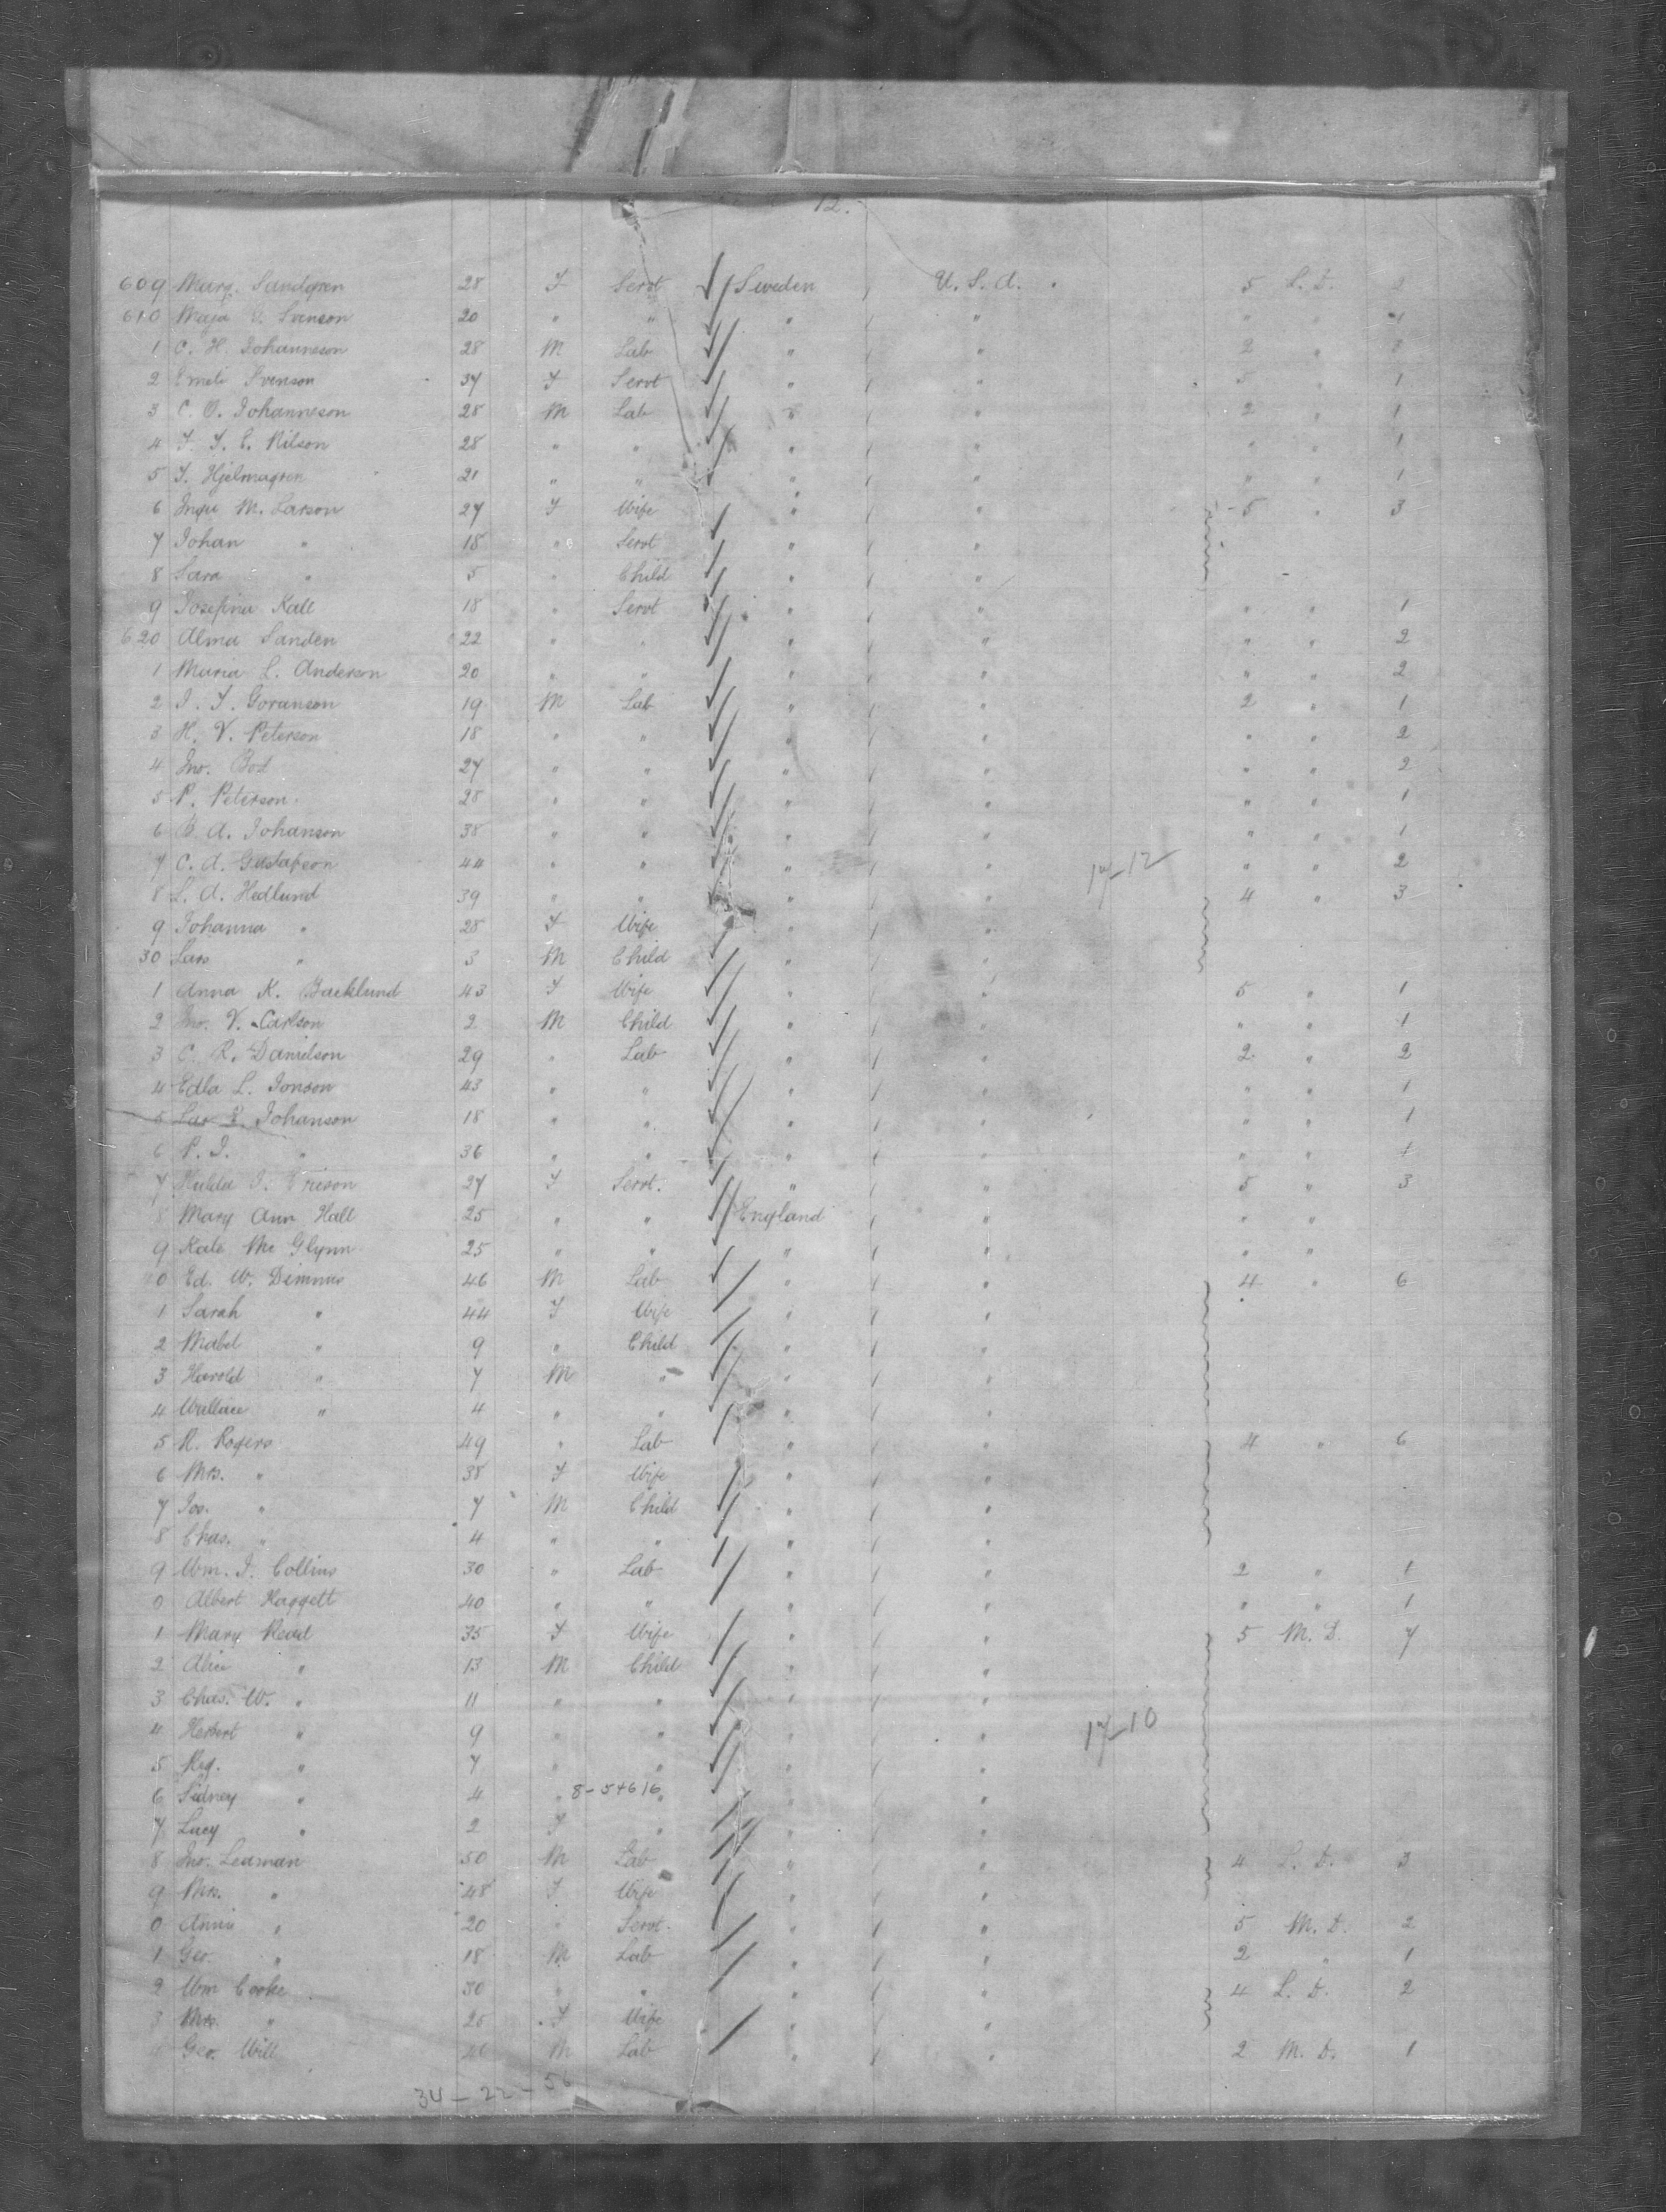 12.
609 Marg. Sandgren 28 F Servt Sweden U.S.A. 5 L.D. 2
610 Maja Svenson 20 " " " " " " 1
1 C. H. Johanneson 28 M Lab " " 2 " 3
2 Emeli Svenson 37 F Servt " " 5 " 1
3 C. O. Johanneson 28 M Lab " " 2 " 1
4 F. F. E. Nilson 28 " " " " " " 1
5 F. Hjelmagren 21 " " " " " " 1
6 M. Larson 27 F Wife " " 5 " 3
7 Johan " 18 " Servt " "
8 Sara " 5 " Child " "
9 Josefina Kall 18 " Servt " " " " 1
620 Alma Sanden 22 " " " " " " 2
1 Maria L. Anderson 20 " " " " " " 2
2 J. F. Goranson 19 M Lab " " 2 " 1
3 H. V. Peterson 18 " " " " " " 2
4 Jno. 27 " " " " " " 2
5 P. Peterson 28 " " " " " " 1
6 B. A. Johanson 38 " " " " " " 1
7 C. A. Gustafson 44 " " " " 17-12 " " 2
8 L. A. Hedlund 39 " " " " 4 " 3
9 Johanna " 28 F Wife " "
30 Lars " 3 M Child " "
1 Anna K. Backlund 43 F Wife " " 5 " 1
2 Jno. V. Carlson 2 M Child " " " " 1
3 C. R. Danielson 29 " Lab " " 2 " 2
4 Edla L. Jonson 43 " " " " " " 1
5 Johanson 18 " " " " " " 1
6 P. J. " 36 " " " " " " 1
7 Hulda J. Erison 27 F Servt. " " 5 " 3
8 Mary Ann Hall 25 " " England " " "
9 Kate Mc Glynn 25 " " " " " "
0 Ed. W. Dimmis 46 M Lab " " 4 " 6
1 Sarah " 44 F Wife " "
2 Mabel " 9 " Child " "
3 Harold " 7 M " " "
4 Wallace " 4 " " " "
5 R. Rogers 49 " Lab " " 4 " 6
6 Mrs. " 38 F Wife " "
7 Jos. " 7 M Child " "
8 Chas. " 4 " " " "
9 Wm. J. Collins 30 " Lab " " 2 " 1
0 Albert Haggett 40 " " " " " " 1
1 Mary Read 35 F Wife " " 5 M.D. 7
2 Alice " 13 M Child " "
3 Chas. W. " 11 " " " "
4 Herbert " 9 " " " " 17-10
5 Reg. " 7 " " " "
6 Sidney " 4 " 8-54616 " " "
7 Lucy " 2 F " " "
8 Jno. Leaman 50 M Lab " " 4 L.D. 3
9 Mrs. " 48 F Wife " "
0 Annie " 20 " Servt. " " 5 M.D. 2
1 Geo. " 18 M Lab " " 2 " 1
2 Wm Cooke 30 " " " " 4 L.D. 2
3 Mrs. " 25 F Wife " "
4 Geo. Will M Lab " " 2 M.D. 1
34-22-56